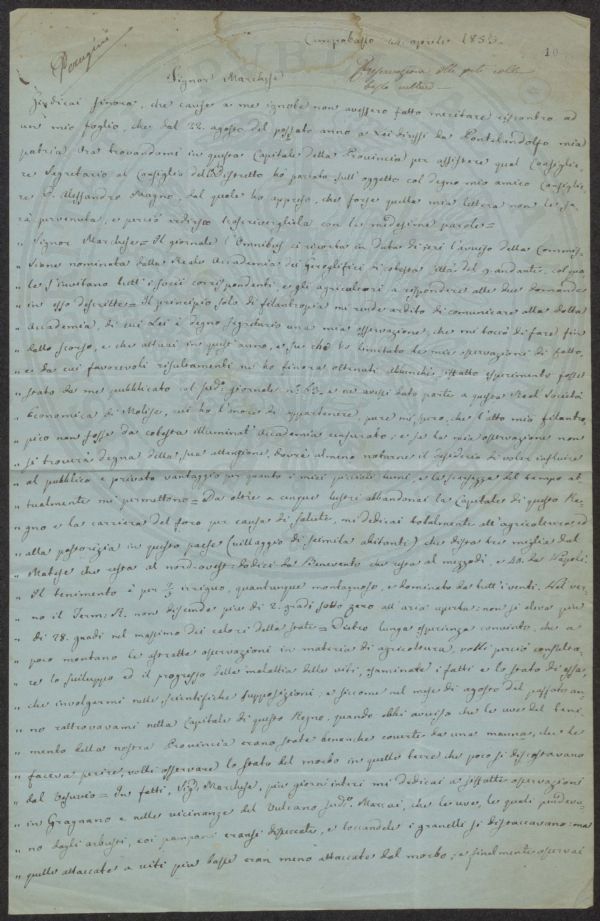 Perugini
Campobasso aprile 1853
10
Signor Marchese
Osservazioni alle viti colle
basse colture
Giudicai finora, che cause a me ignote non avessero fatto meritare riscontro ad
un mio foglio, che dal 22. agosto del passato anno a Lei diressi da Pontelandolfo mia
patria. Ora trovandomi in questa Capitale della Provincia per assistere qual Consiglie-
re Segretario al Consiglio del Distretto ho parlato sull'oggetto col degno mio amico Consiglie
re D. Alessandro Magno, dal quale ho appreso, che forse quella mia lettera non le sa-
rà pervenuta, e perciò trascrivergliela con le medesime parole =
" Signor Marchese = Il giornale l'Omnibus ci riporta in data di ieri l'avviso della Commis-
" sione nominata dalla Reale Accademia dei di cotesta Città del 9. andante, col qua
" le s'invitano tutt'i socii corrispondenti, e gli agricoltori a rispondere alle due domande
" in esso descritte = Il principio solo di filantropia mi rende ardito di comunicare alla dotta
" Accademia, di cui Lei è degno Segretario una mia osservazione, che mi toccò di fare fin
" dallo scorso, e che attuai in quest'anno, e su che ho limitato le mie operazioni di fatto,
" e da cui favorevoli risultamenti ne ho finora ottenuti. Benchè, siffatto esperimento fosse
" stato da me pubblicato col sud.o giornale n.o 63, e ne avessi dato parte a questa Real Società
" Economica di Molise, cui ho l'onore di appartenere, pure mi, spero, che l'atto mio filantro
" pico non fosse da cotesta illuminat'Accademia censurato, e se la mia osservazione non
" si troverà degna della sua attenzione, dovrà almeno notarne il desiderio di voler influire
" al pubblico e privato vantaggio per quanto i miei piccioli lumi, e la scarsezza del tempo at
" tualmente mi permettono = Da oltre a cinque lustri abbandonai la Capitale di questo Re-
" gno e la carriera del foro per causa di salute, mi dedicai totalmente all'agricoltura ed
" alla pastorizia in questo paese (villaggio di seimila abitanti) che dista tre miglia dal
" Matese che resta al nord-ovest: dodici da Benevento che resta al mezzodì, e 40. da Napoli.
" Il tenimento è per 2/3 irriguo, quantunque montagnoso, e dominato da tutt'i venti. Nel ver
" no il Term: R. non discende più di 2. gradi sotto zero all'aria aperta: non si eleva più
" di 28. gradi nel massimo dei calori della state = Dietro lunga esperienza convinto, che a
" poco montano le astratte osservazioni in materia di agricoltura, volli perciò consulta
" re lo sviluppo ed il progresso della malattia delle viti, esaminate i fatti e lo stato di essa,
" che involgermi nelle scientifiche supposizioni, e siccome nel mese di agosto del passato an
" no ritrovavami nella Capitale di questo Regno, quando ebbi avviso che le uve del teni-
" mento della nostra Provincia erano state benanche coverte da una manna, che le
" faceva perire, volli osservare lo stato del morbo in quelle terre che poco si discostavano
" dal Vesuvio = In fatti, Sig.r Marchese, più giorni interi mi dedicai a siffatte osservazioni
" in Gragnano e nelle vicinanze del Vulcano sud.o Marcai, che le uve, le quali pendeva-
" no dagli arbusti, coi pampani eransi disseccate, e toccandole i granelli si distaccavano: ma
" quelle attaccate a viti più basse eran meno attaccate dal morbo; e finalmente osservai